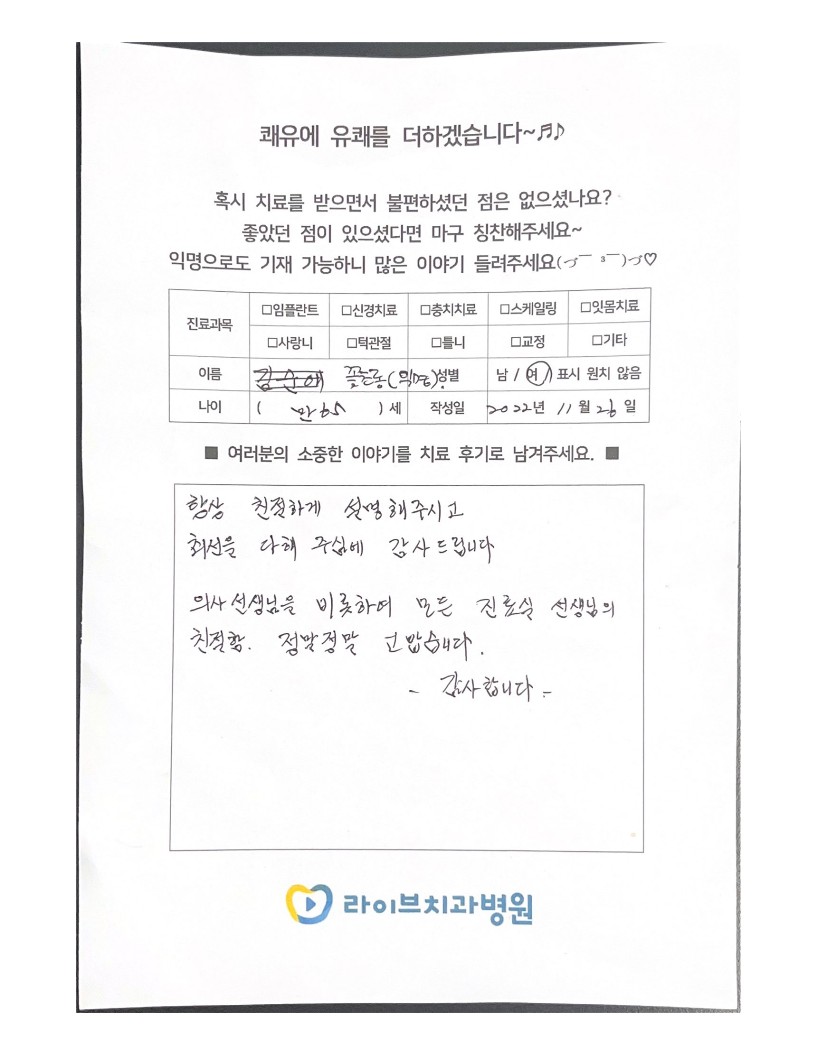 쾌유에 유쾌를 더하겠습니다~♬♪
혹시 치료를 받으면서 불편하셨던 점은 없으셨나요?
좋았던 점이 있으셨다면 마구 칭찬해주세요~
익명으로도 기재 가능하니 많은 이야기 들려주세요(づ￣ ³￣)づ♡
진료과목 □임플란트 □신경치료 □충치치료 □스케일링 □잇몸치료
□사랑니 □턱관절 □틀니 □교정 □기타
이름 꽃든동(익명) 성별 남 / 여 / 표시 원치 않음
나이 ( 만 65 ) 세 작성일 2022년 11월 26일
■ 여러분의 소중한 이야기를 치료 후기로 남겨주세요. ■
항상 친절하게 설명해주시고
최선을 다해 주심에 감사드립니다
의사선생님을 비롯하여 모든 진료실 선생님의
친절함. 정말정말 고맙습니다.
- 감사합니다 -
라이브치과병원